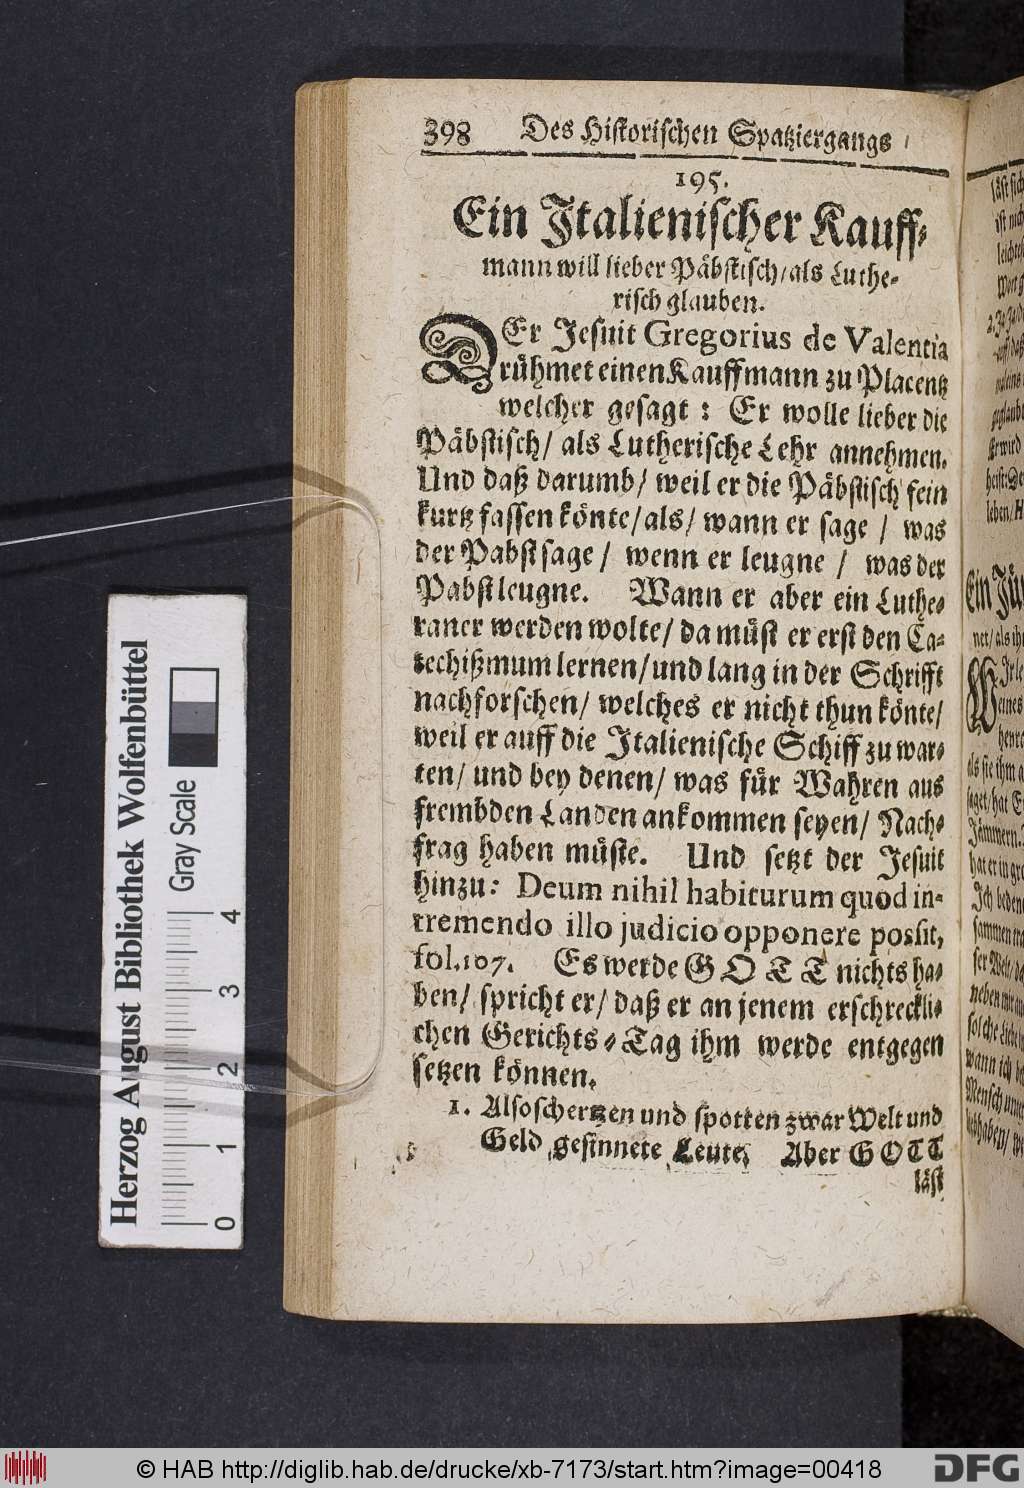 398 Des Historischen Spatziergangs
195.
Ein Italienischer Kauff-
mann will lieber Päbstisch/als Luthe-
risch glauben.
DEr Jesuit Gregorius de Valentia
rühmet einen Kauffmann zu Placentz
welcher gesagt: Er wolle lieber die
Päbstisch/ als Lutherische Lehr annehmen.
Und daß darumb/ weil er die Päbstisch fein
kurtz fassen könte/als/ wann er sage / was
der Pabst sage / wenn er leugne / was der
Pabst leugne. Wann er aber ein Luthe-
raner werden wolte/ da müst er erst den Ca-
techißmum lernen/und lang in der Schrifft
nachforschen/ welches er nicht thun könte/
weil er auff die Italienische Schiff zu war-
ten/ und bey denen/ was für Wahren aus
frembden Landen ankommen seyen/ Nach-
frag haben müste. Und setzt der Jesuit
hinzu: Deum nihil habiturum quod in-
tremendo illo judicio opponere possit,
fol.107. Es werde GOTT nichts ha-
ben/ spricht er/ daß er an jenem erschreckli-
chen Gerichts-Tag ihm werde entgegen
setzen können.
1. Also schertzen und spotten zwar Welt und
Geld gesinnete Leute, Aber GOTT
läst
läst sich
ist nich
Ein Jü
net/ als ih
als sie ihm
Jämmern.
Herzog August Bibliothek Wolfenbüttel
Gray Scale
0 1 2 3 4
© HAB http://diglib.hab.de/drucke/xb-7173/start.htm?image=00418
DFG